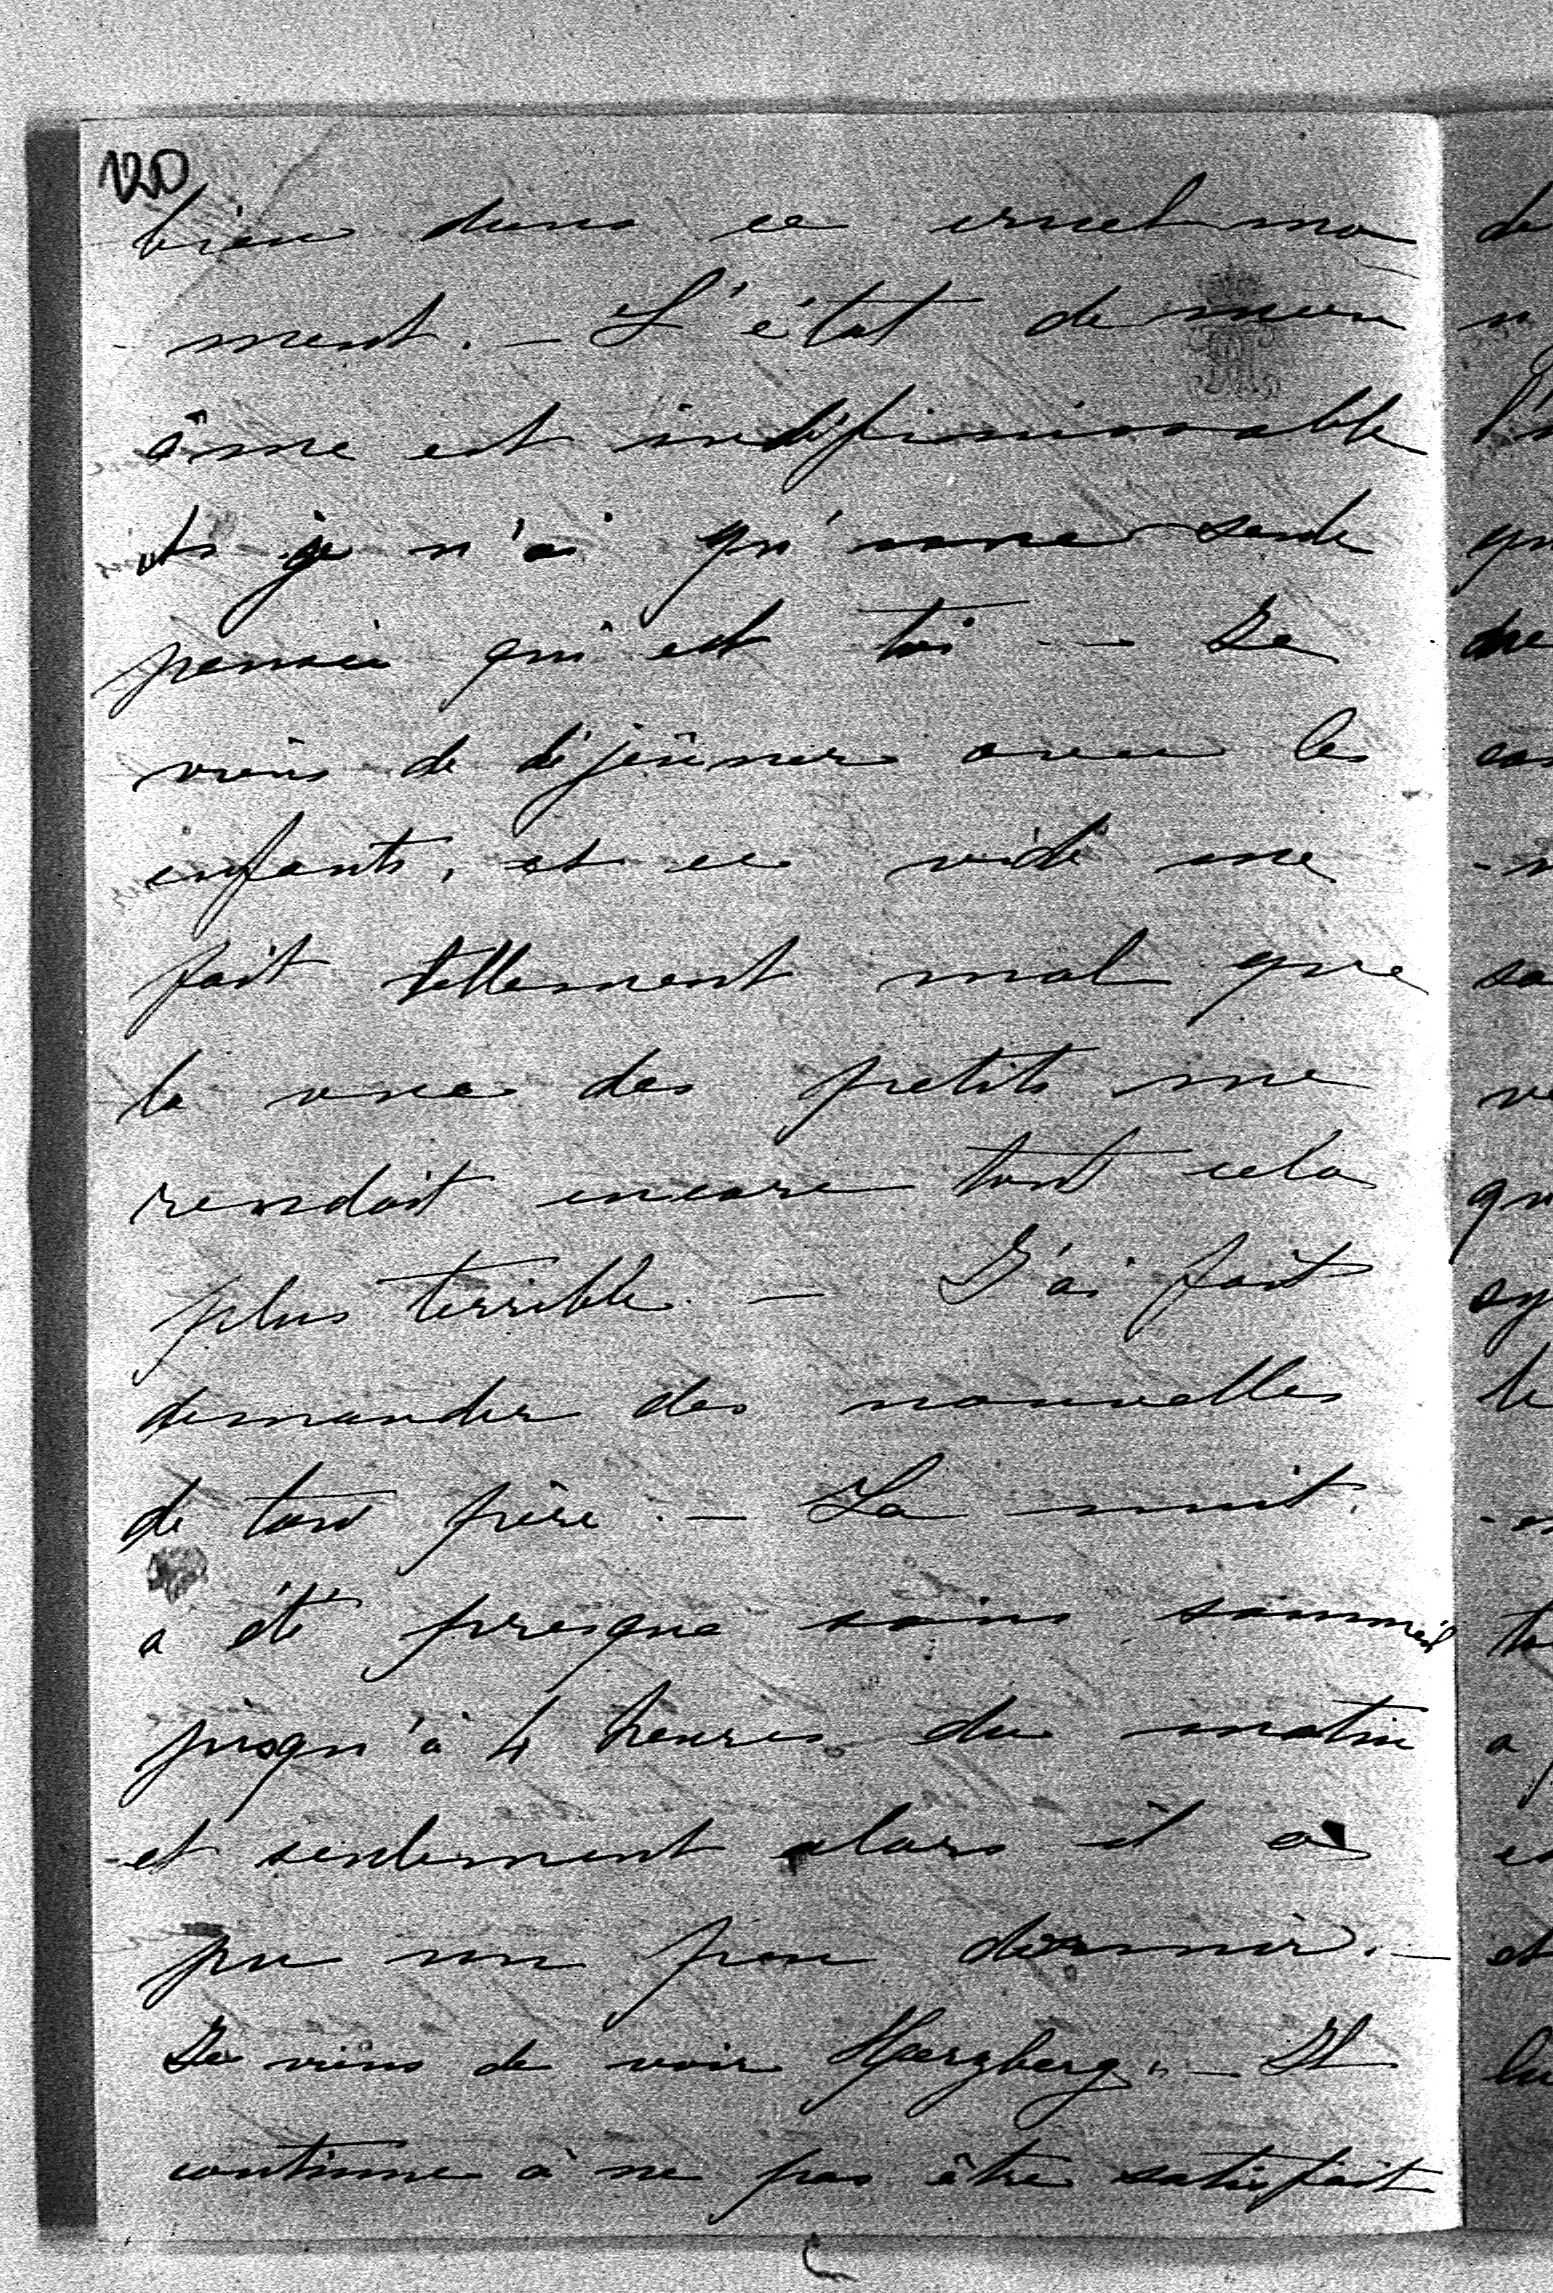 120
bien dans ce cruel mo
ment. — L'état de mon
âme est indéfinissable
et je n'ai qu'une seule
pensée qui est toi — Je
viens de déjeûner avec les
enfants, et ce vide me
fait tellement mal que
la vue des petits me
rendait encore tout cela
plus terrible. — J'ai fait
demander des nouvelles
de ton frère. — La nuit
a été presque sans sommeil
jusqu'à 4 heures du matin
et seulement alors il a
pu un peu dormir. —
Je viens de voir Herzberg. — Il
continue à ne pas être satisfait